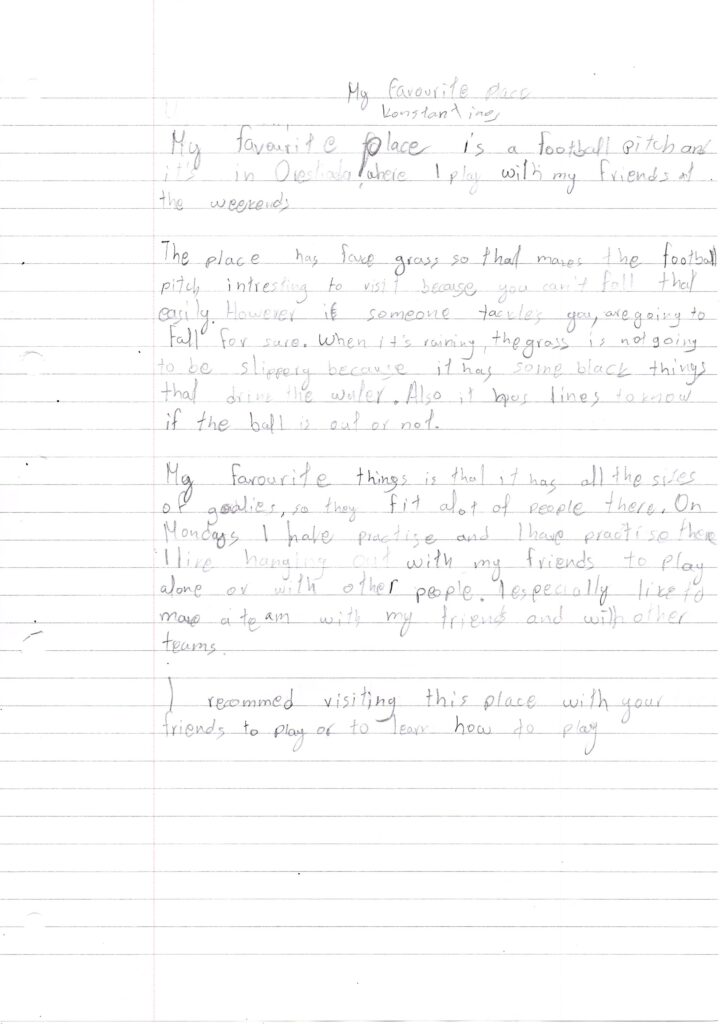 My Favourite place
Konstantinos
My favourite place is a football pitch and
it's in Orestiada, where I play with my friends at
the weekends
The place has fake grass so that makes the football
pitch intresting to visit because you can't fall that
easily. However if someone tackles you, are going to
fall for sure. When it's raining, the grass is not going
to be slippery because it has some black things
that drink the water. Also it has lines to know
if the ball is out or not.
My favourite things is that it has all the sizes
of goalies, so they fit alot of people there. On
Mondays I have practise and I have practise there
I like hanging out with my friends to play
alone or with other people. I especially like to
make a team with my friends and with other
teams.
I recommed visiting this place with your
friends to play or to learn how to play